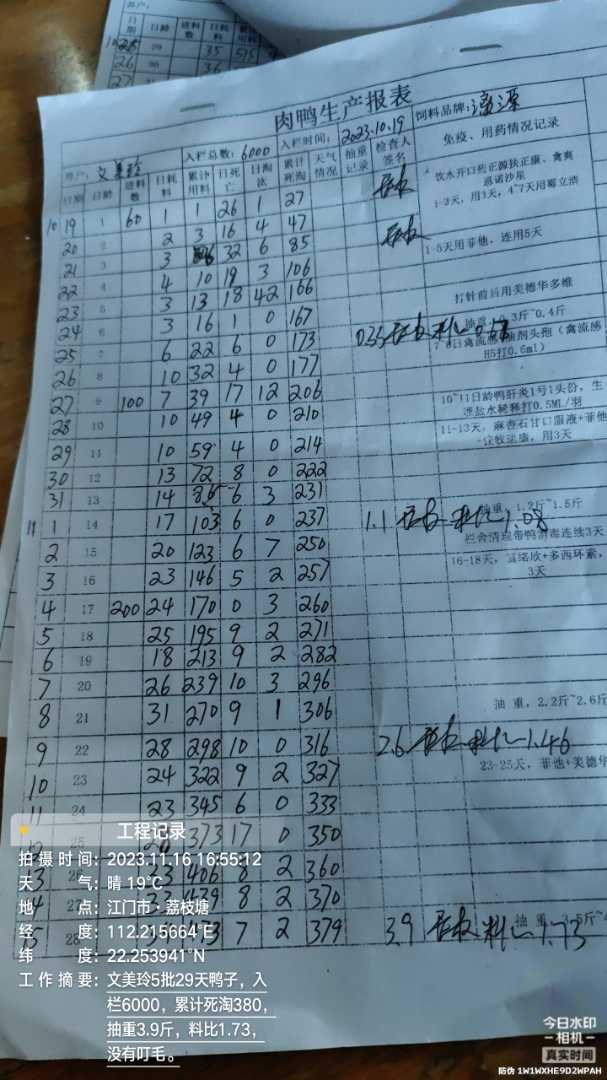 肉鸭生产报表
养户: 文美玲 入栏总数: 6000 入栏时间: 2023.10.19 饲料品牌:
日期 日龄 进料数 日耗料 累计用料 日死亡 日淘汰 累计死淘 天气情况 抽重记录 检查人签名 免疫、用药情况记录
10 19 1 60 1 1 26 1 27
饮水开口药正源扶正康、禽爽
1-3天, 用3天, 4~7天用霉立清
20 2 2 3 16 4 47
1-5天用菲他, 连用5天
21 3 3 32 6 85
22 4 4 10 19 3 106
打针前后用美德华多维
23 5 3 13 18 42 166
24 6 3 16 1 0 167
25 7 6 22 6 0 173
H5打0.6ml)
26 8 10 32 4 0 177
27 9 100 7 39 17 12 206
10~11日龄鸭肝炎1号1头份, 生
理盐水稀释打0.5ML/羽
28 10 10 49 4 0 210
11-13天, 麻杏石甘口服液+菲他
29 11 10 59 4 0 214
30 12 13 72 8 0 222
31 13 14 86 6 3 231
抽重, 1.2斤~1.5斤
11 1 14 17 103 6 0 237 1.1 1.08
2 15 20 123 6 7 250
3 16 23 146 5 2 257
16-18天, 富络欣+多西环素,
3天
4 17 200 24 170 0 3 260
5 18 25 195 9 2 271
6 19 18 213 9 2 282
7 20 26 239 10 3 296
抽重, 2.2斤~2.6斤
8 21 31 270 9 1 306
9 22 28 298 10 0 316 2.6 1.46
10 23 24 322 9 2 327
23-25天, 菲他+美德华
11 24 23 345 6 0 333
373 17 0 350
406 8 2 360
439 8 2 370
473 7 2 379 3.9 料比1.73
工程记录
拍摄时间: 2023.11.16 16:55:12
天气: 晴 19℃
地点: 江门市·荔枝塘
经度: 112.215664°E
纬度: 22.253941°N
工作摘要: 文美玲5批29天鸭子, 入
栏6000, 累计死淘380,
抽重3.9斤, 料比1.73,
没有叮毛。
今日水印
相机
真实时间
防伪 1W1WXHE9D2WPAH